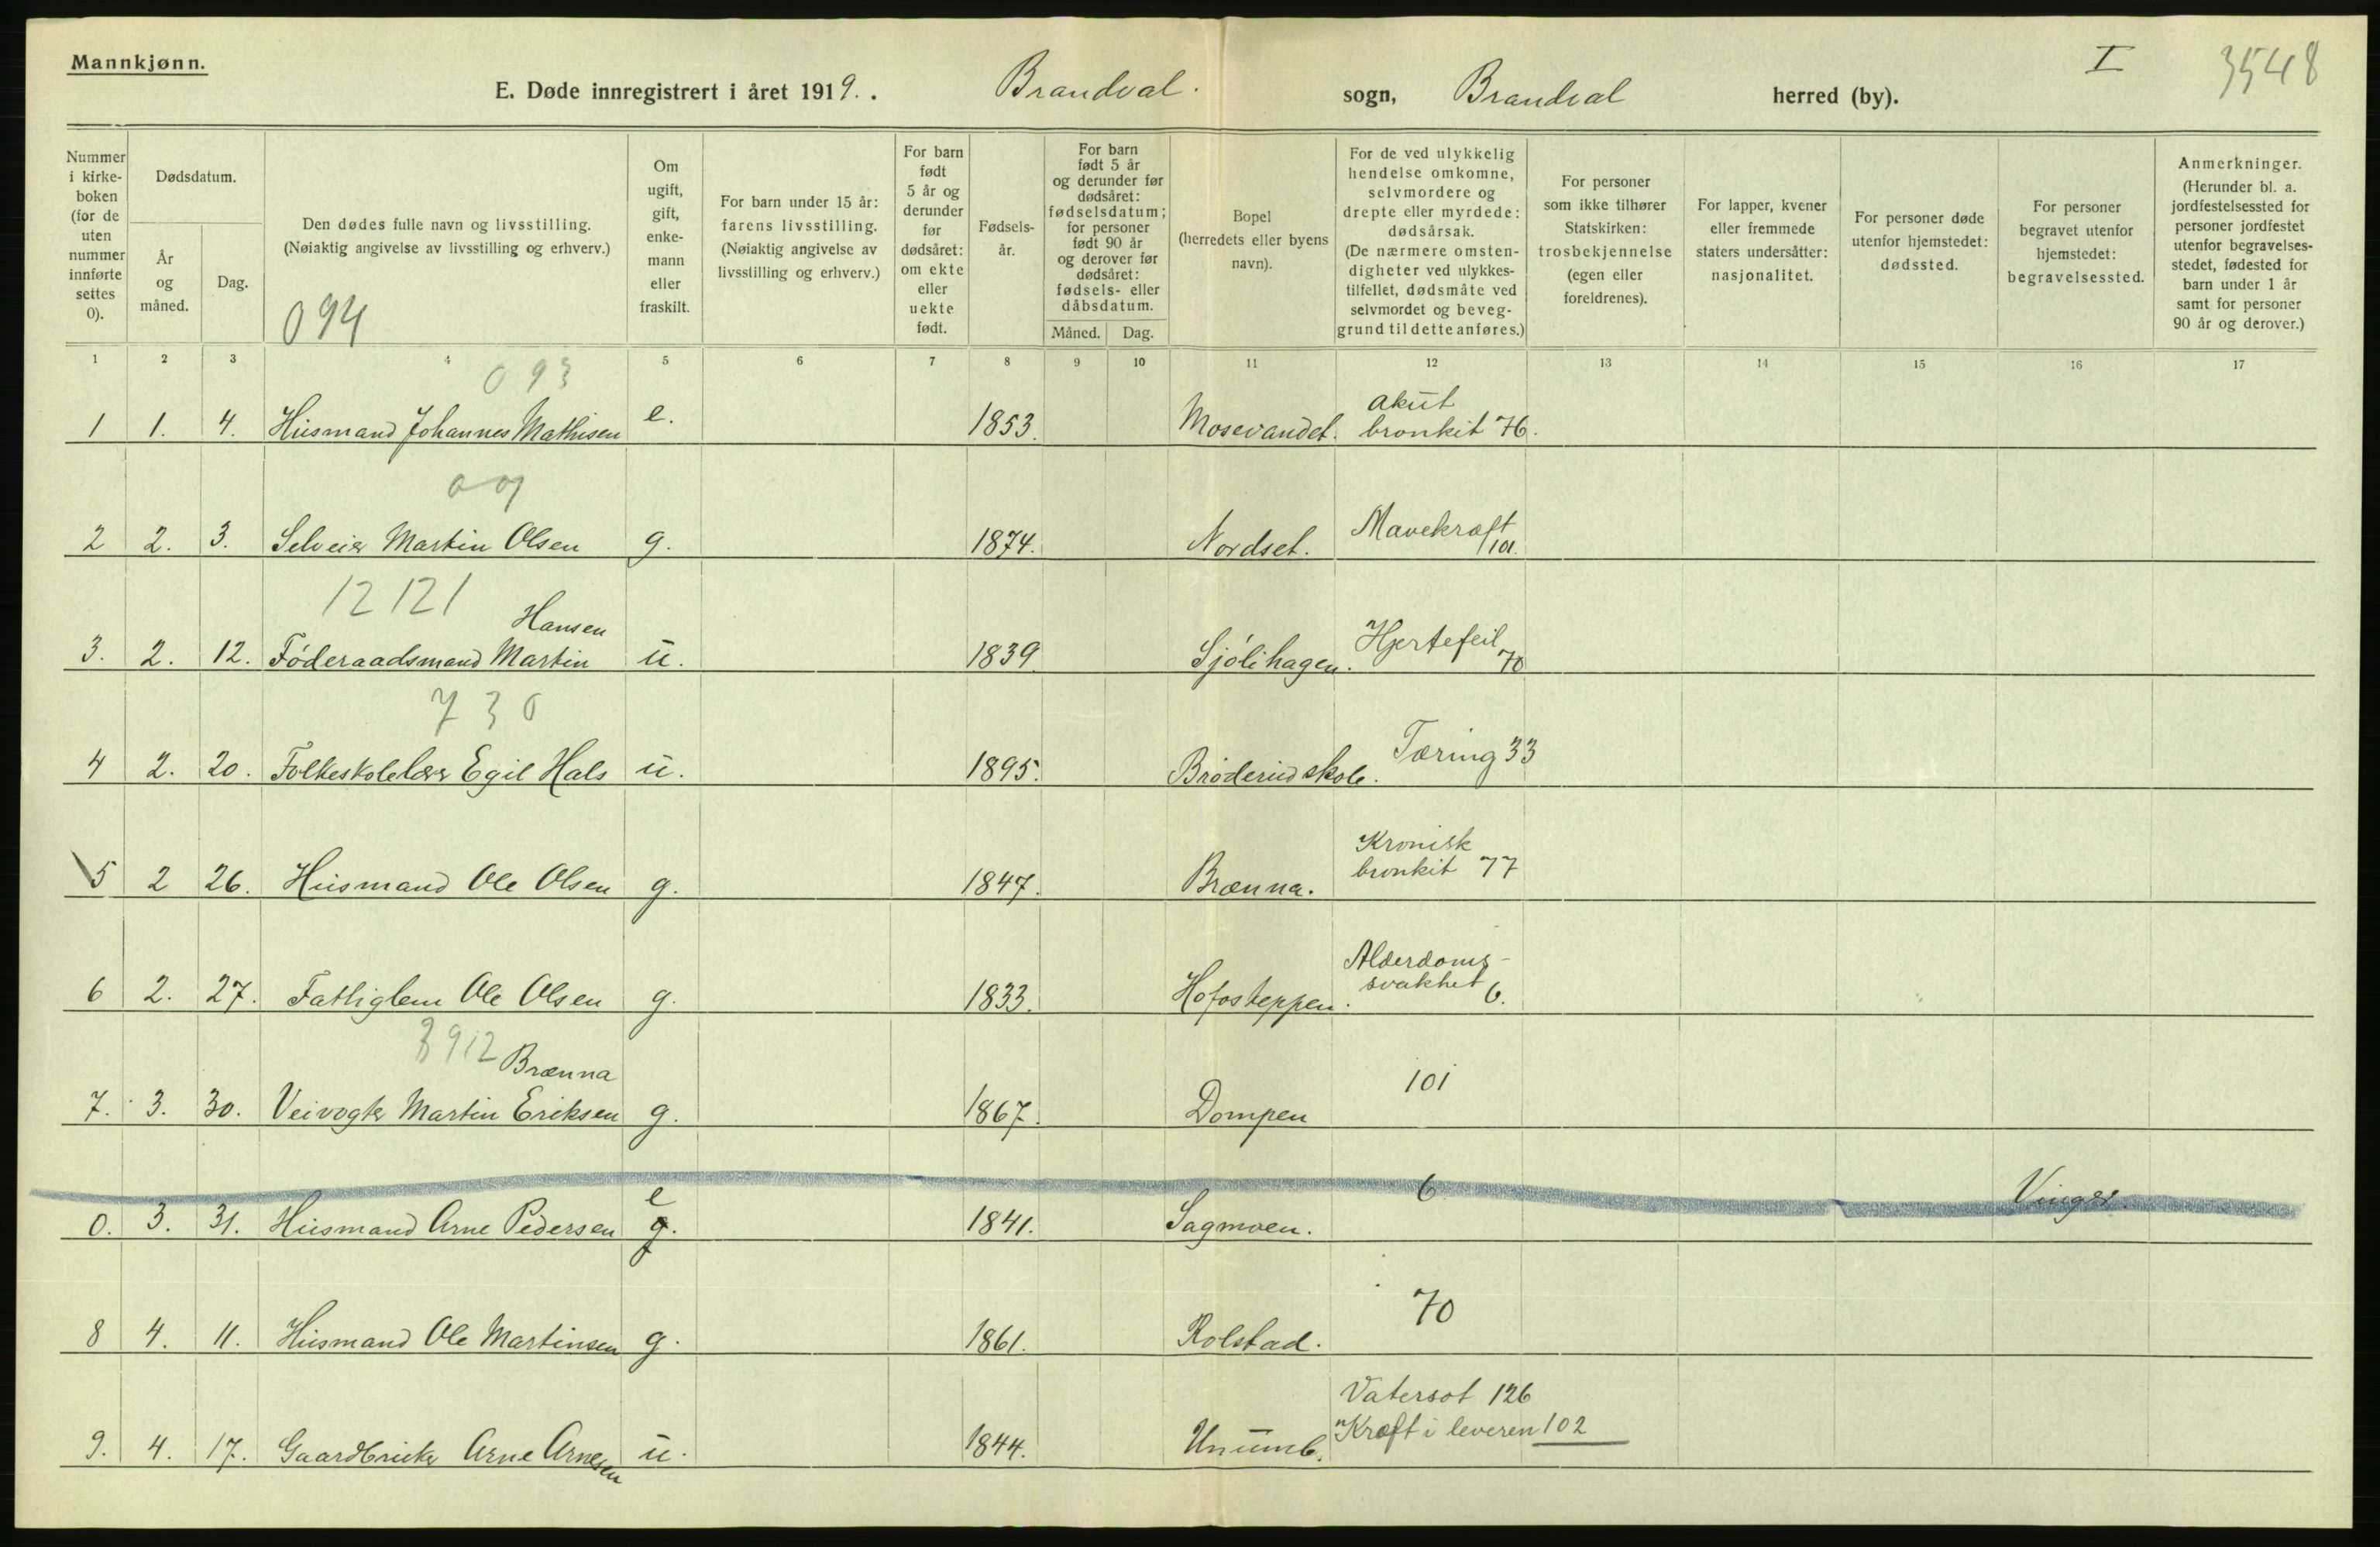 Mannkjønn.
I 3548
E. Døde innregistrert i året 1919. . Brandval. sogn, Brandval herred (by).
Nummer i kirke- boken (for de uten nummer innførte settes 0).
Dødsdatum.
År og måned.
Dag.
Den dødes fulle navn og livsstilling.
(Nøiaktig angivelse av livsstilling og erhverv.)
094
Om ugift, gift, enke- mann eller fraskilt.
For barn under 15 år: farens livsstilling. (Nøiaktig angivelse av livsstilling og erhverv.)
For barn født 5 år og derunder før dødsåret: om ekte eller uekte født.
Fødsels- år.
For barn født 5 år og derunder før dødsåret: fødselsdatum; for personer født 90 år og derover før dødsåret: fødsels- eller dåbsdatum.
Måned. Dag.
Bopel (herredets eller byens navn).
For de ved ulykkelig hendelse omkomne, selvmordere og drepte eller myrdede: dødsårsak. (De nærmere omsten- digheter ved ulykkes- tilfellet, dødsmåte ved selvmordet og beveg- grund til dette anføres.)
For personer som ikke tilhører Statskirken: trosbekjennelse (egen eller foreldrenes).
For lapper, kvener eller fremmede staters undersåtter: nasjonalitet.
For personer døde utenfor hjemstedet: dødssted.
For personer begravet utenfor hjemstedet: begravelsessted.
Anmerkninger. (Herunder bl. a. jordfestelsessted for personer jordfestet utenfor begravelses- stedet, fødested for barn under 1 år samt for personer 90 år og derover.)
1 2 3 4 5 6 7 8 9 10 11 12 13 14 15 16 17
093
akut
1 1. 4. Husmand Johannes Mathisen e. 1853. Mosevandet. bronkit 76.
2 2. 3. Selveier Martin Olsen g. 1874. Nordset. Mavekræft 101.
12121
Hansen
3. 2. 12. Føderaadsmand Martin u. 1839. Sjölihagen. Hjertefeil 70
730
4 2. 20. Folkeskolelærer Egil Hals u. 1895. Bröderud skole. Tæring 33
Kronisk
5 2 26. Husmand Ole Olsen g. 1847. Brænna. bronkit 77
Alderdoms-
6 2. 27. Fattiglem Ole Olsen g. 1833. Hofosteppen. svakhet 6.
8912 Brænna
7. 3. 30. Veivogter Martin Eriksen g. 1867. Dompen 101
e
0. 3. 31. Husmand Arne Pedersen g. 1841. Sagmoen. 6 Vinger.
8 4. 11. Husmand Ole Martinsen g. 1861. Rolstad. 70
Vatersot 126
9. 4. 17. Gaardbruker Arne Arnesen u. 1844. Kræft i leveren 102